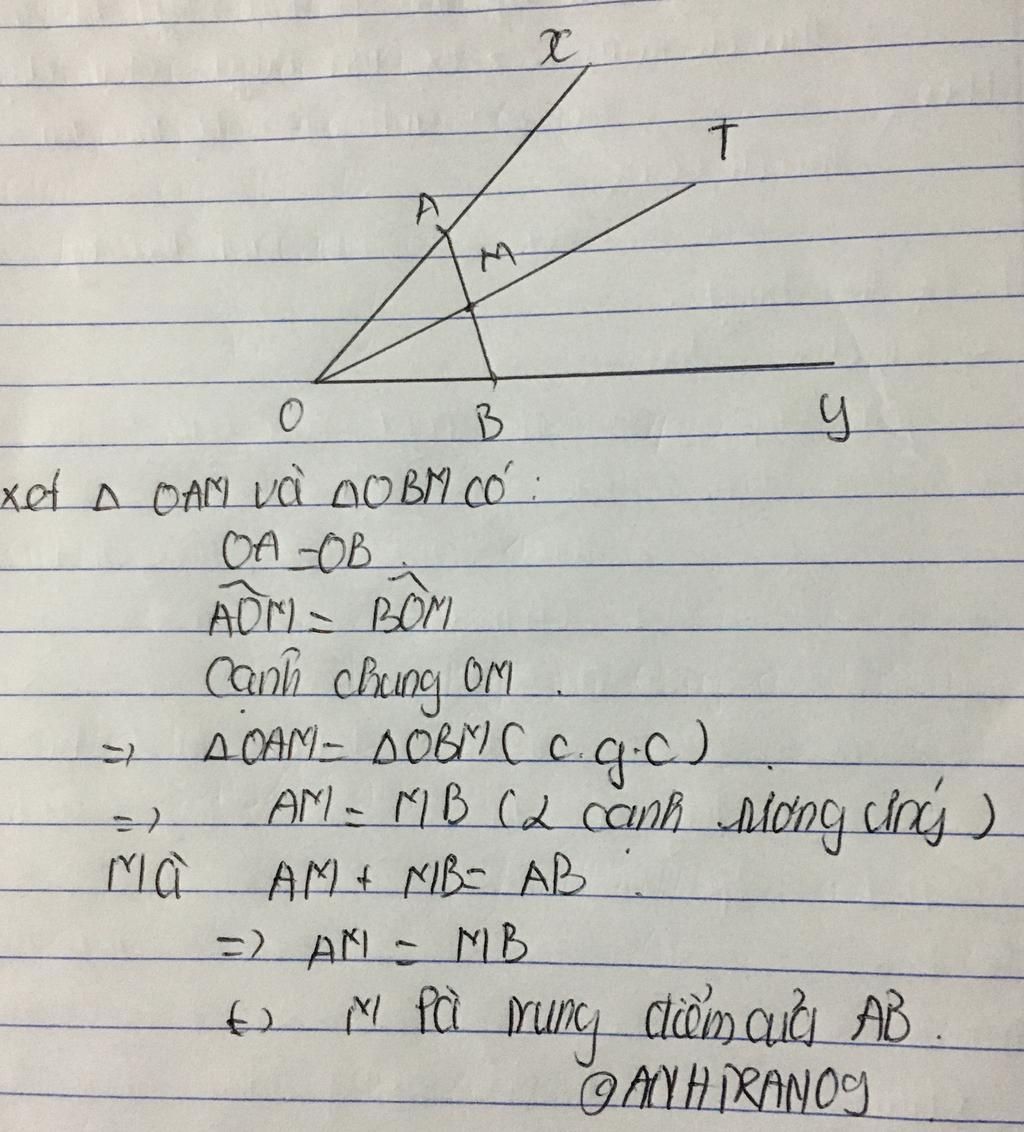 x
T
A
M
O
B
y
xét Δ OAM và ΔOBM có :
OA = OB .
AÔM = BÔM
Cạnh chung OM .
=> ΔOAM = ΔOBM ( c.g.c ) .
=> AM = MB ( 2 cạnh tương ứng )
Mà AM + MB = AB .
=> AM = MB
<=> M là trung điểm của AB .
@ANHTRAN09